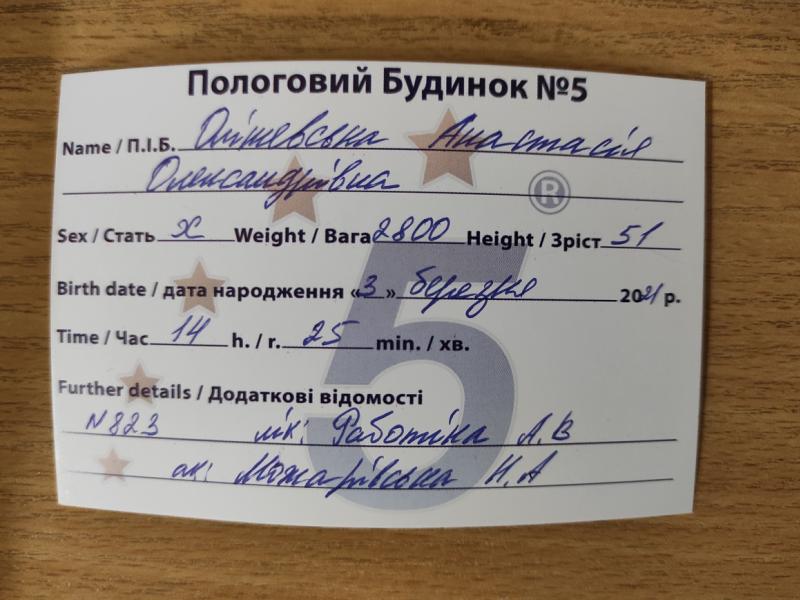 Пологовий Будинок №5
Name / П.І.Б. Олішевська Анастасія
Олександрівна
®
Sex / Стать Ж Weight / Вага 2800 Height / Зріст 51
Birth date / дата народження «3» березня 2021 р.
Time / Час 14 h. / г. 25 min. / хв.
5
Further details / Додаткові відомості
N 823 лік: Работіка А.В
ак: Можарівська Н.А